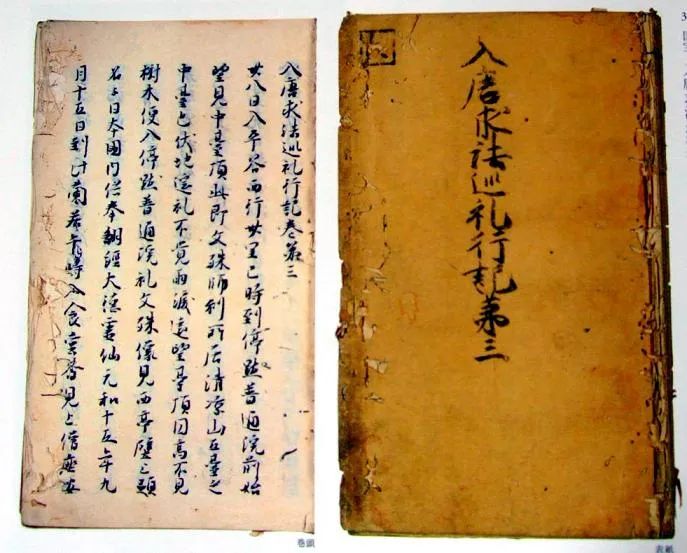 入唐求法巡礼行記第三
入唐求法巡礼行記巻第三
廿八日入平谷西行卅里巳時到停點普通院前始
望見中臺頂此即文殊師利所居清凉山五臺之
中臺也伏地遥礼不覚雨涙遥望臺頂円高不見
樹木便入停點普通院礼文殊像見西亭壁上題
名云日本國内供奉翻經大德霊仙元和十五年九
月十五日到此蘭若入食堂見上僧座安
巻頭
表紙